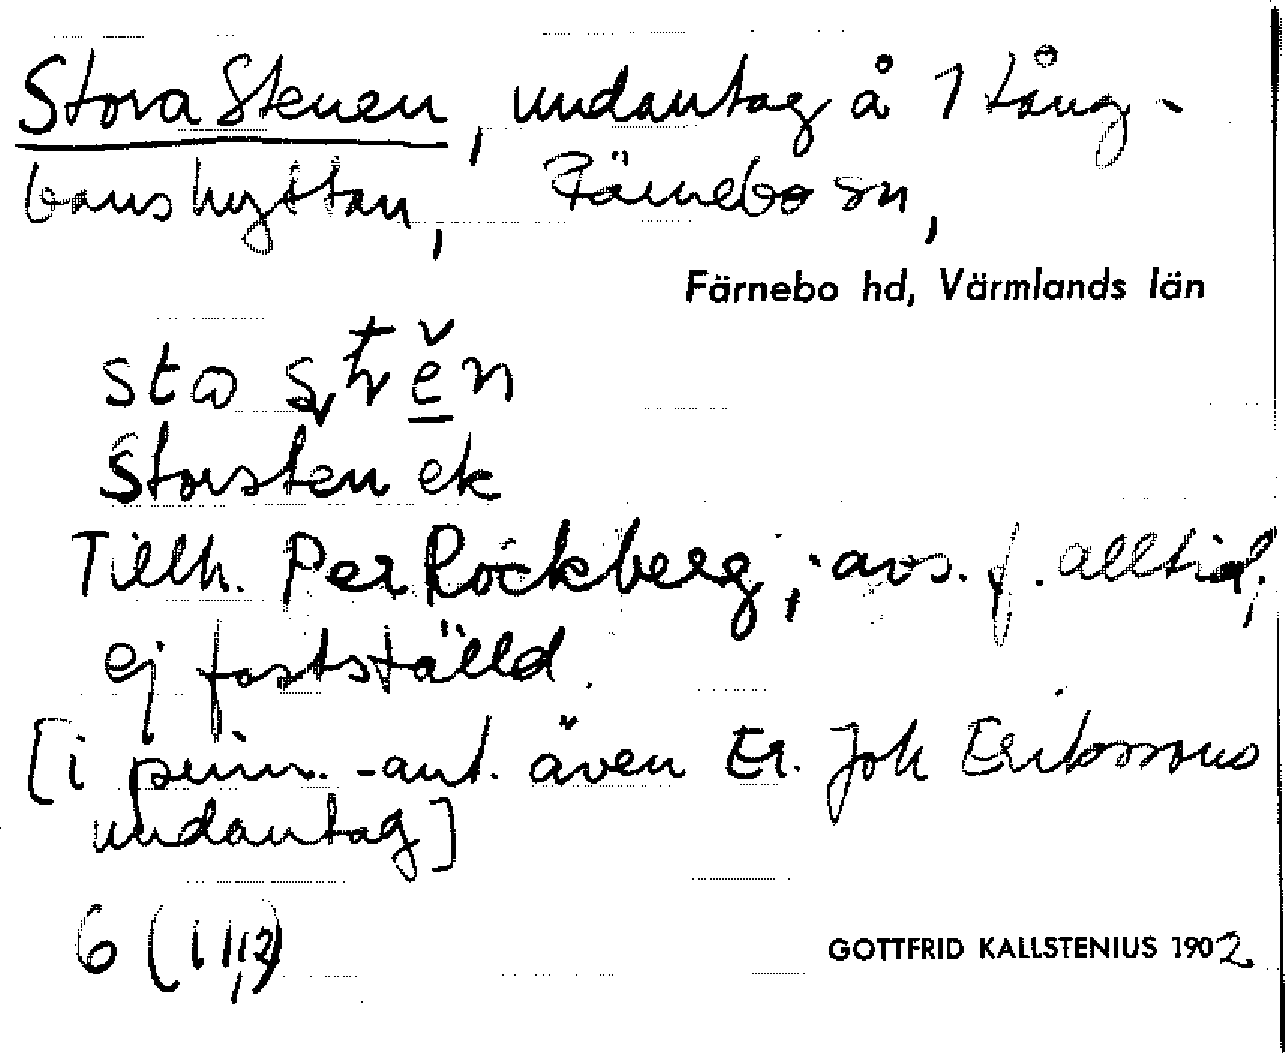 Stora Stenen, undantag å 1 Lång-
banshyttan, Färnebo sn,
Färnebo hd, Värmlands län
Storsten ek
Tillh. Per Röckberg; avs. f. alltid,
ej fastställd.
[i prim.-ant. även Er. Joh Erikssons
undantag]
6 (1 1,2)
GOTTFRID KALLSTENIUS 1902